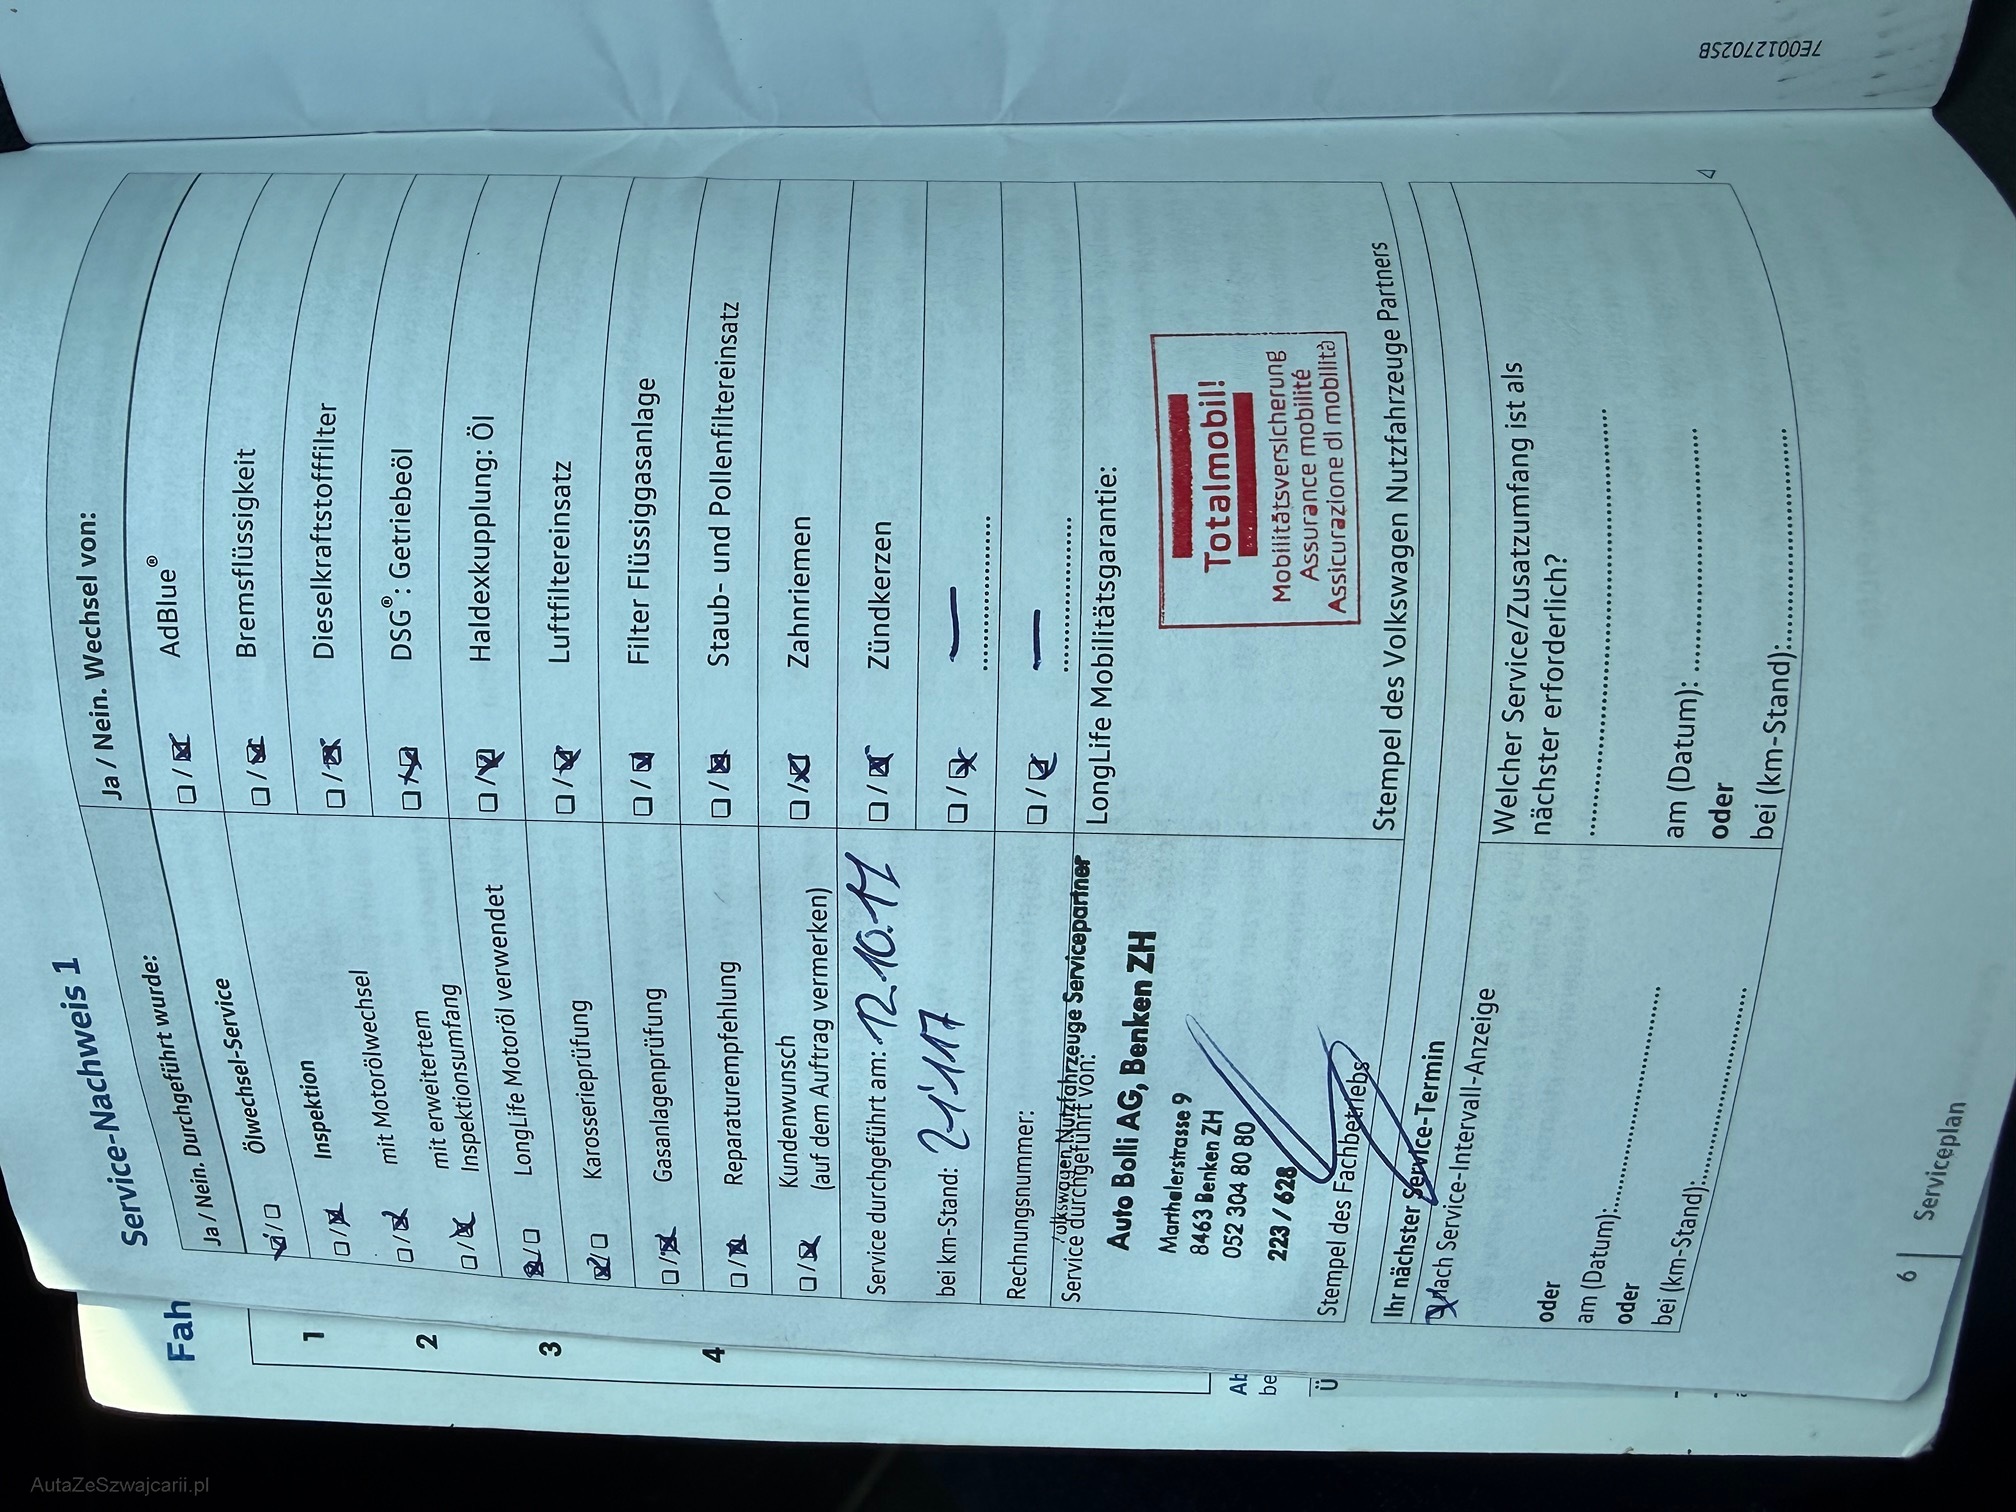 Service-Nachweis 1
Ja / Nein. Durchgeführt wurde:
Ölwechsel-Service
Inspektion
mit Motorölwechsel
mit erweitertem
Inspektionsumfang
LongLife Motoröl verwendet
Karosserieprüfung
Gasanlagenprüfung
Reparaturempfehlung
Kundenwunsch
(auf dem Auftrag vermerken)
Service durchgeführt am: 12.10.17
bei km-Stand: 21'117
Rechnungsnummer:
Volkswagen Nutzfahrzeuge Servicepartner
Service durchgeführt von:
Auto Bolli AG, Benken ZH
Marthalerstrasse 9
8463 Benken ZH
052 304 80 80
223 / 628
Stempel des Fachbetriebs
Ja / Nein. Wechsel von:
AdBlue®
Bremsflüssigkeit
Dieselkraftstofffilter
DSG®: Getriebeöl
Haldexkupplung: Öl
Luftfiltereinsatz
Filter Flüssiggasanlage
Staub- und Pollenfiltereinsatz
Zahnriemen
Zündkerzen
LongLife Mobilitätsgarantie:
Totalmobil!
Mobilitätsversicherung
Assurance mobilité
Assicurazione di mobilità
Stempel des Volkswagen Nutzfahrzeuge Partners
Ihr nächster Service-Termin
nach Service-Intervall-Anzeige
oder
am (Datum):
oder
bei (km-Stand):
Welcher Service/Zusatzumfang ist als
nächster erforderlich?
am (Datum):
oder
bei (km-Stand):
6
Serviceplan
7E0012702SB
Fah
1
2
3
4
Ab
be
Ü
AutaZeSzwajcarii.pl